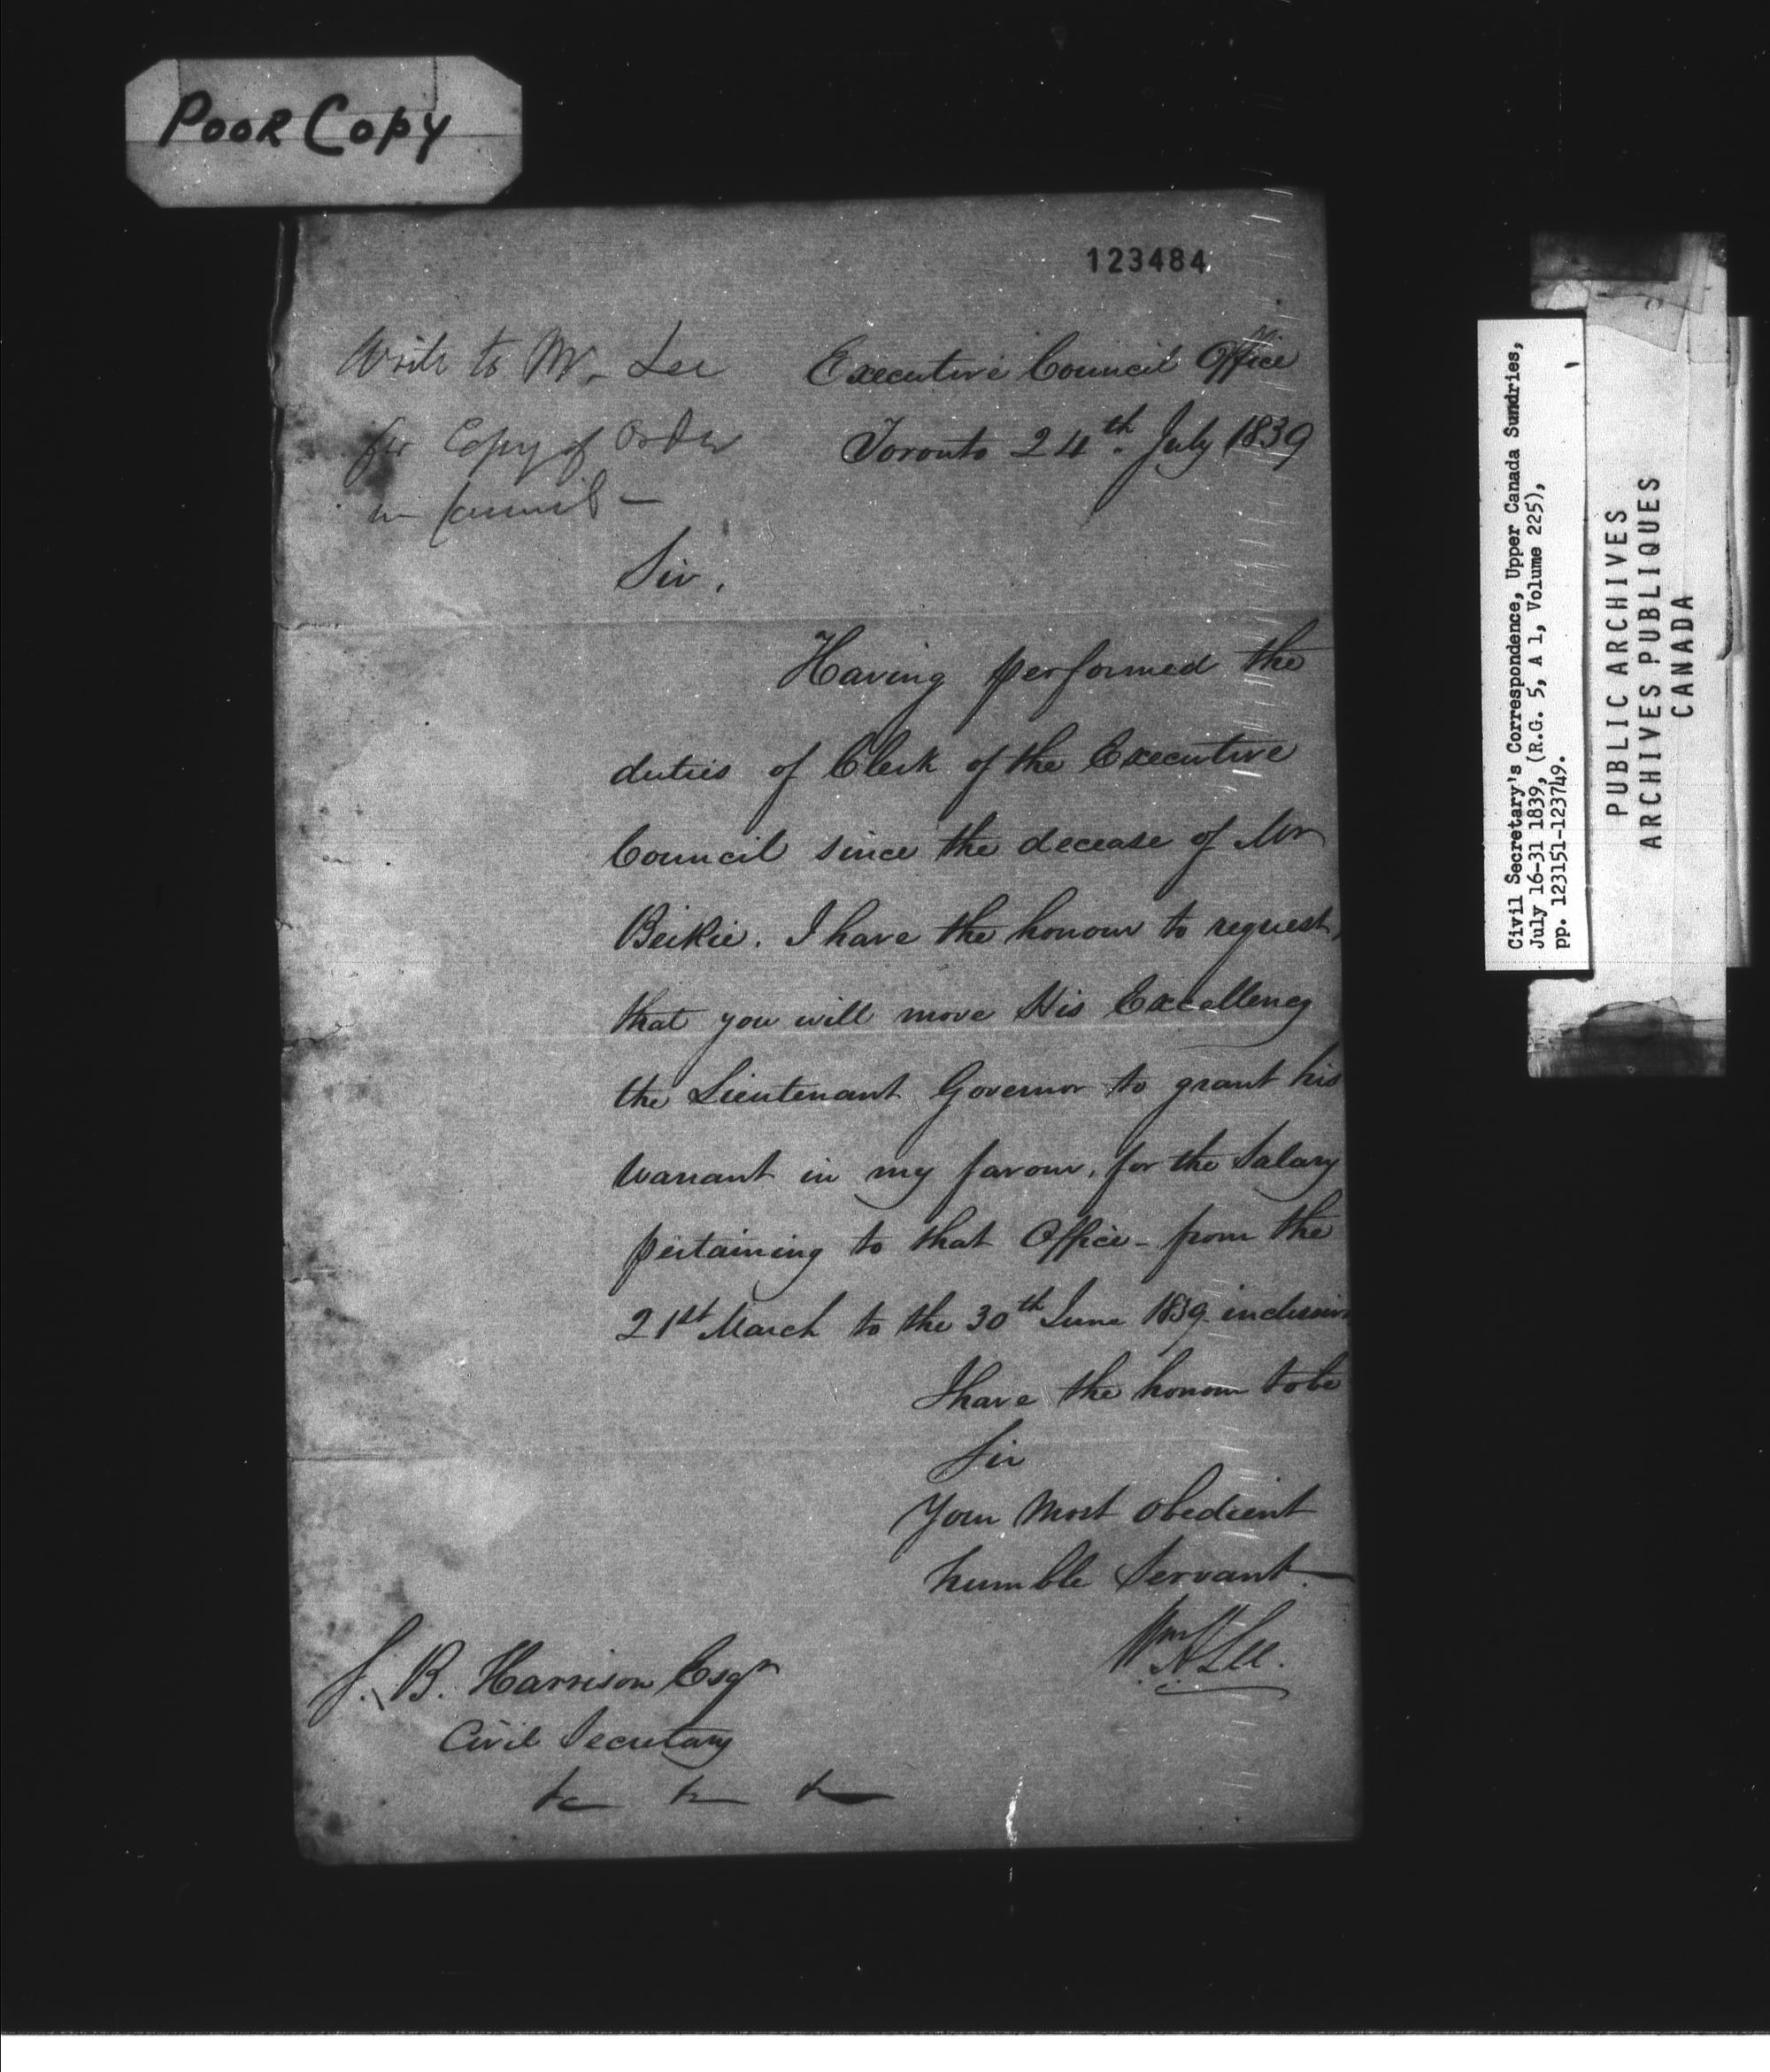 Poor Copy
123484
Write to Mr. Lee
for Copy of Order
in Council —
Executive Council Office
Toronto 24th. July 1839
Sir,
Having performed the
duties of Clerk of the Executive
Council since the decease of Mr
Beikie. I have the honour to request,
that you will move His Excellency
the Lieutenant Governor to grant his
Warrant in my favour, for the Salary
pertaining to that Office - from the
21st March to the 30th June 1839 inclusive
I have the honour to be
Sir
Your Most Obedient
humble Servant.
Wm H Lee.
S. B. Harrison Esqr
Civil Secretary
&c &c &c
Civil Secretary's Correspondence, Upper Canada Sundries,
July 16-31 1839, (R.G. 5, A 1, Volume 225),
pp. 123151-123749.
PUBLIC ARCHIVES
ARCHIVES PUBLIQUES
CANADA